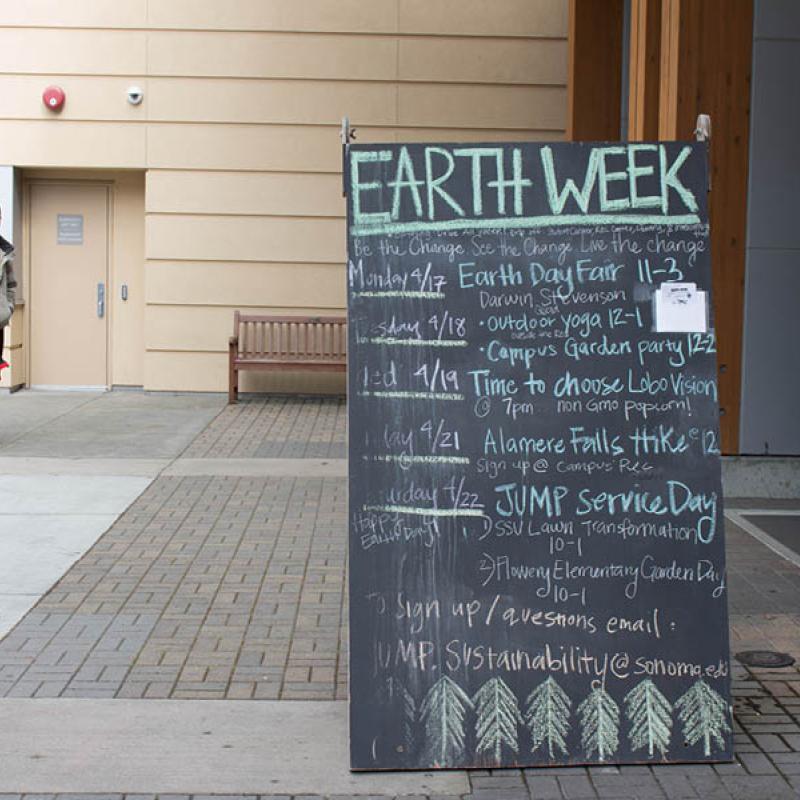 EARTH WEEK
Be the Change. See the Change. Live the change
Monday 4/17 Earth Day Fair 11-3
Darwin Stevenson
Quad
sday 4/18 • outdoor yoga 12-1
• Campus Garden party 12-2
ed 4/19 Time to choose Lobo Vision
@ 7pm non GMO popcorn!
day 4/21 Alamere Falls Hike @ 12
Sign up @ Campus Rec
urday 4/22 JUMP service Day
Happy Earth Day! 1) SSU Lawn Transformation
10-1
2) Flowery Elementary Garden Day
10-1
To sign up/questions email:
JUMP.Sustainability@sonoma.edu